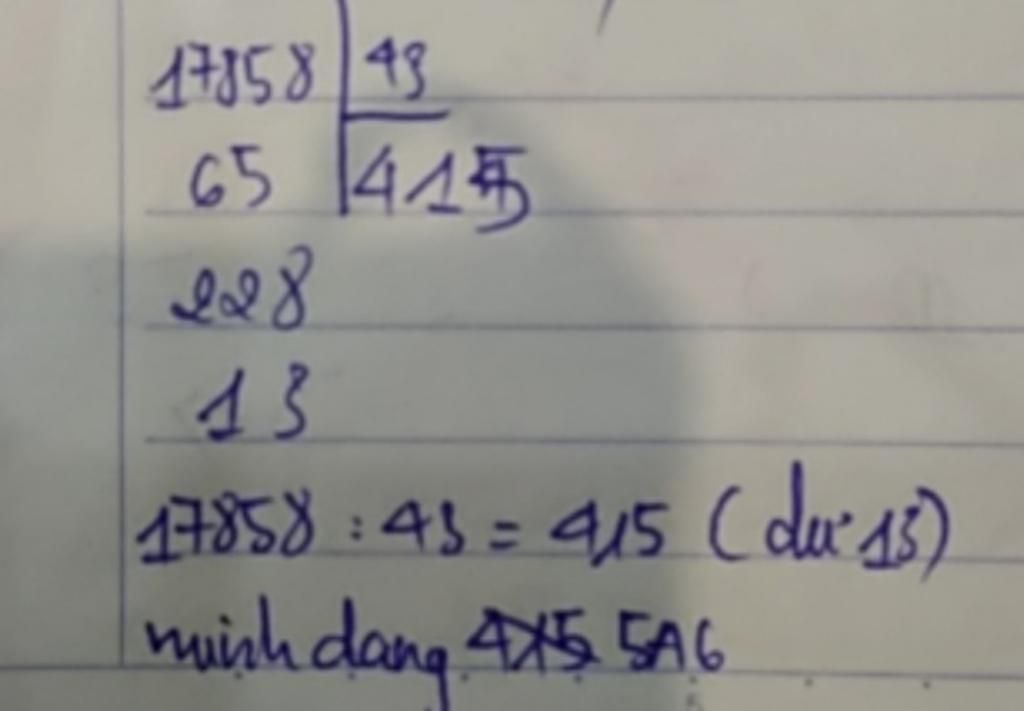 17858 43
65 415
228
13
17858 : 43 = 415 (dư 13)
minh dang 5A6